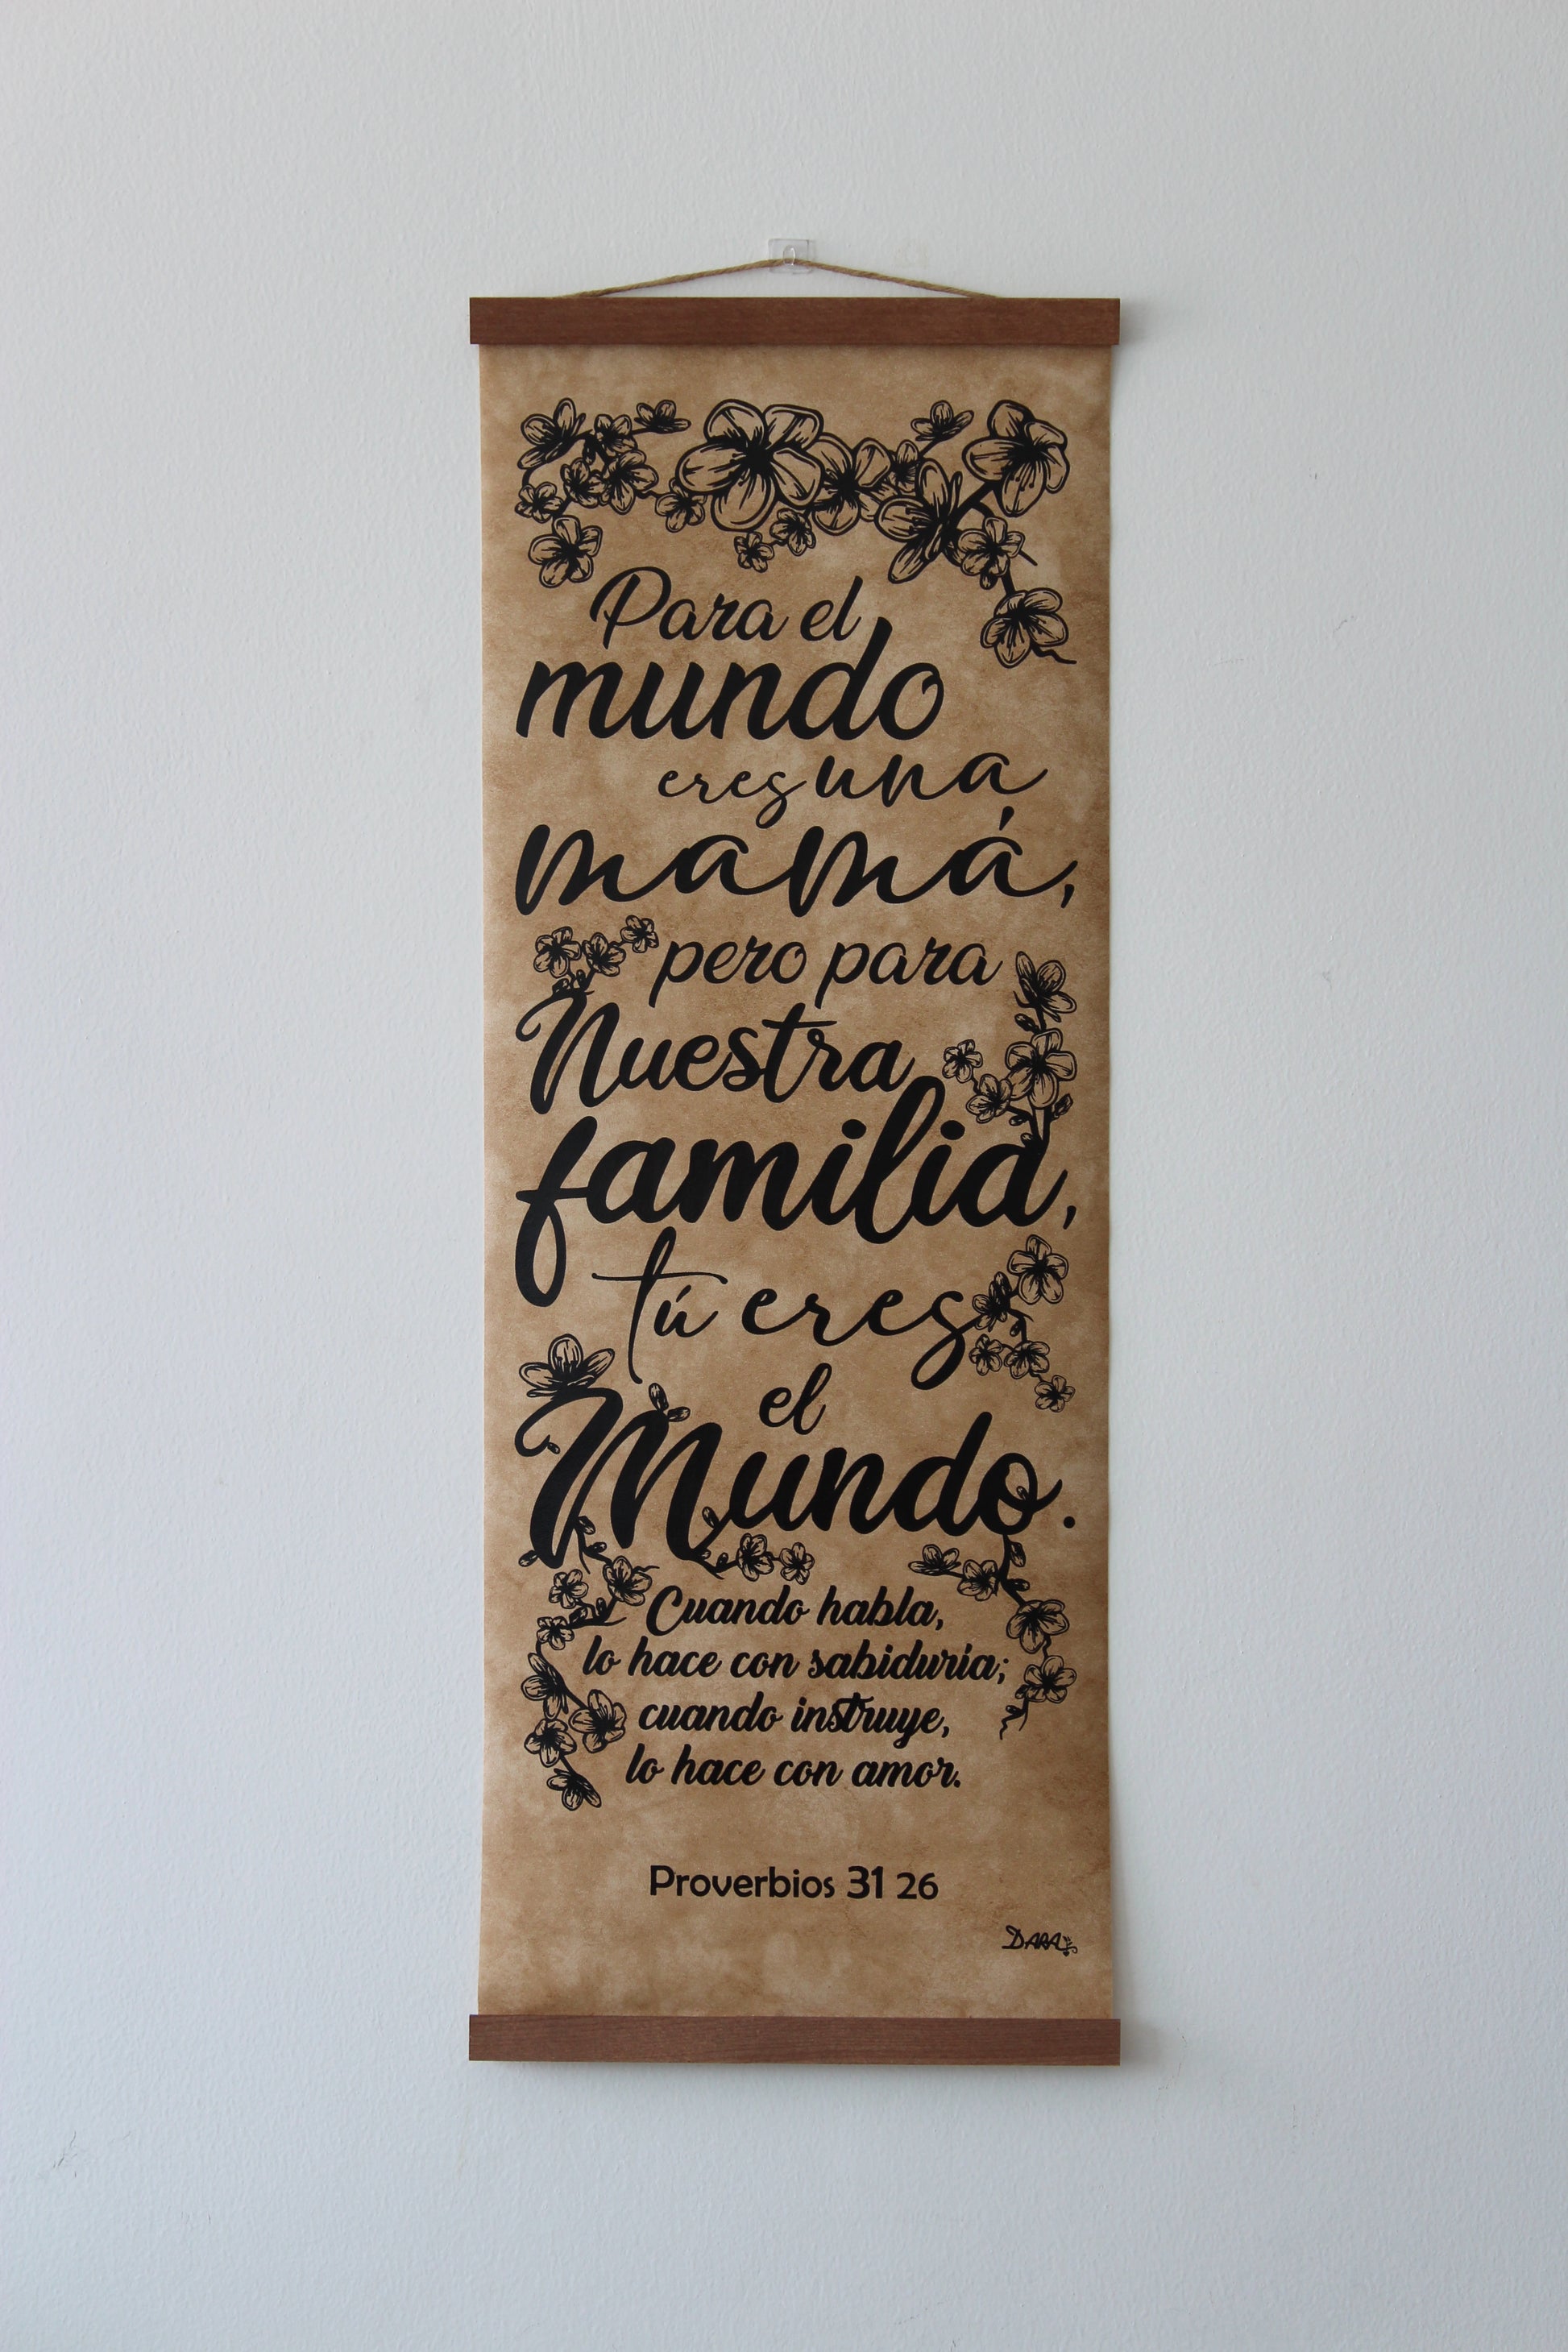 Para el
mundo
eres una
mamá,
pero para
Nuestra
familia,
tú eres
el
Mundo.
Cuando habla,
lo hace con sabiduría;
cuando instruye,
lo hace con amor.
Proverbios 31 26